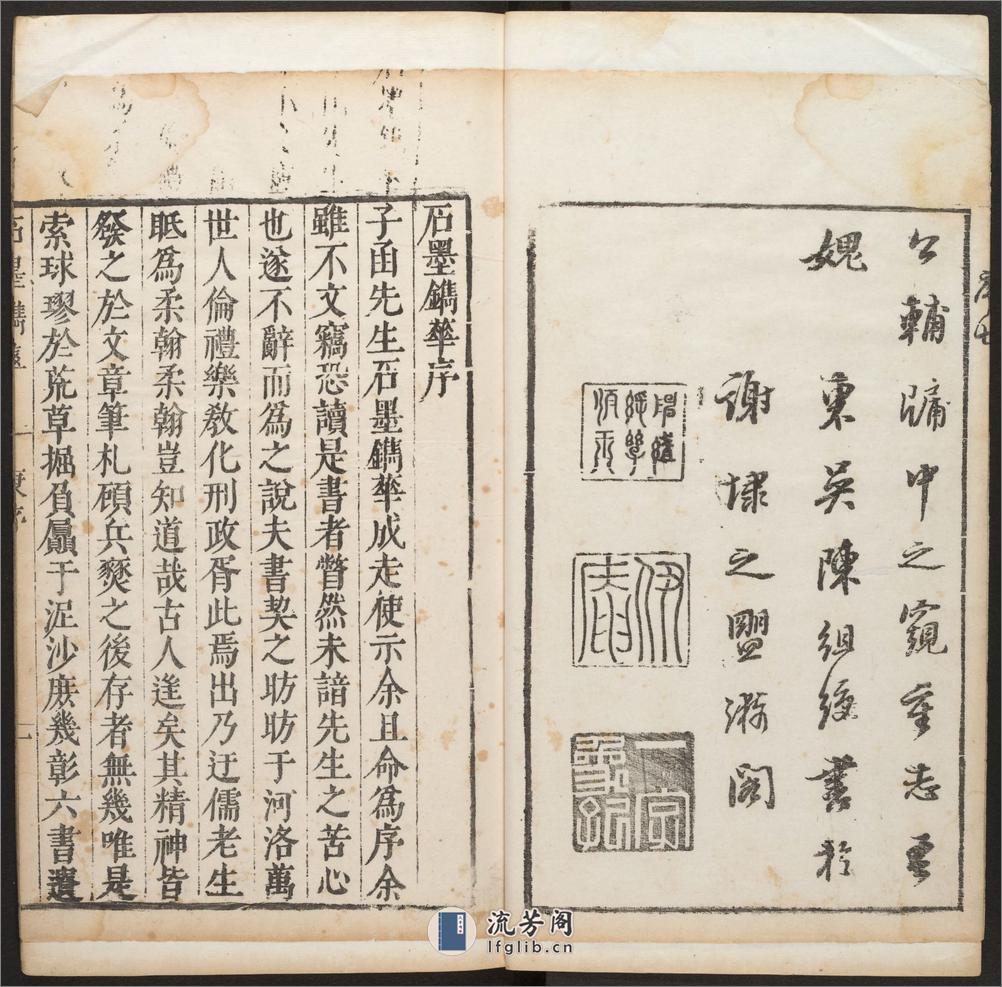 公輔牖中之窺重志吾
媿東吳陳組綬書於
謝埭之盟漪閣
石墨鐫華序
子函先生石墨鐫華成走使示余且命為序余
雖不文竊恐讀是書者瞥然未諳先生之苦心
也遂不辭而為之說夫書契之昉昉于河洛萬
世人倫禮樂敎化刑政胥此焉出乃迂儒老生
眂為柔翰柔翰豈知道哉古人逹矣其精神皆
發之於文章筆札頋兵燹之後存者無幾唯是
索球璆於荒草掘負屭于泥沙庻幾彰六書遺
流芳阁
lfglib.cn